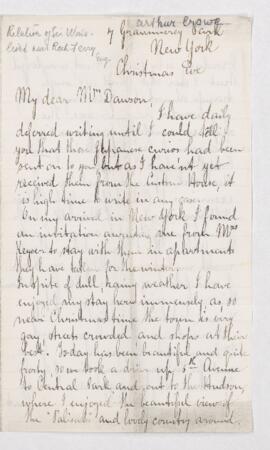 arthur Crowe
Relation of Sir Wm's
lived near Rock Ferry
Eng.
7 Grammercy Park
New York
Christmas Eve
My dear Mrs Dawson,
I have daily
deferred writing until I could tell
you that those Japanese curios had been
sent on to you but as I have'nt yet
received them from the Custom House, it
is high time to write in any case.
On my arrival in New York I found
an invitation awaiting me from Mrs
to stay with them in apartments
they have taken for the winter.
In spite of dull, rainy weather I have
enjoyed my stay here immensely, as so
near Christmas time the town is very
gay, streets crowded and shops at their
best. To-day has been beautiful and quite
frosty, so we took a drive up 5th Avenue
to Central Park and out to the Hudson,
where I enjoyed the beautiful view of
the "Palisades" and lovely country around.